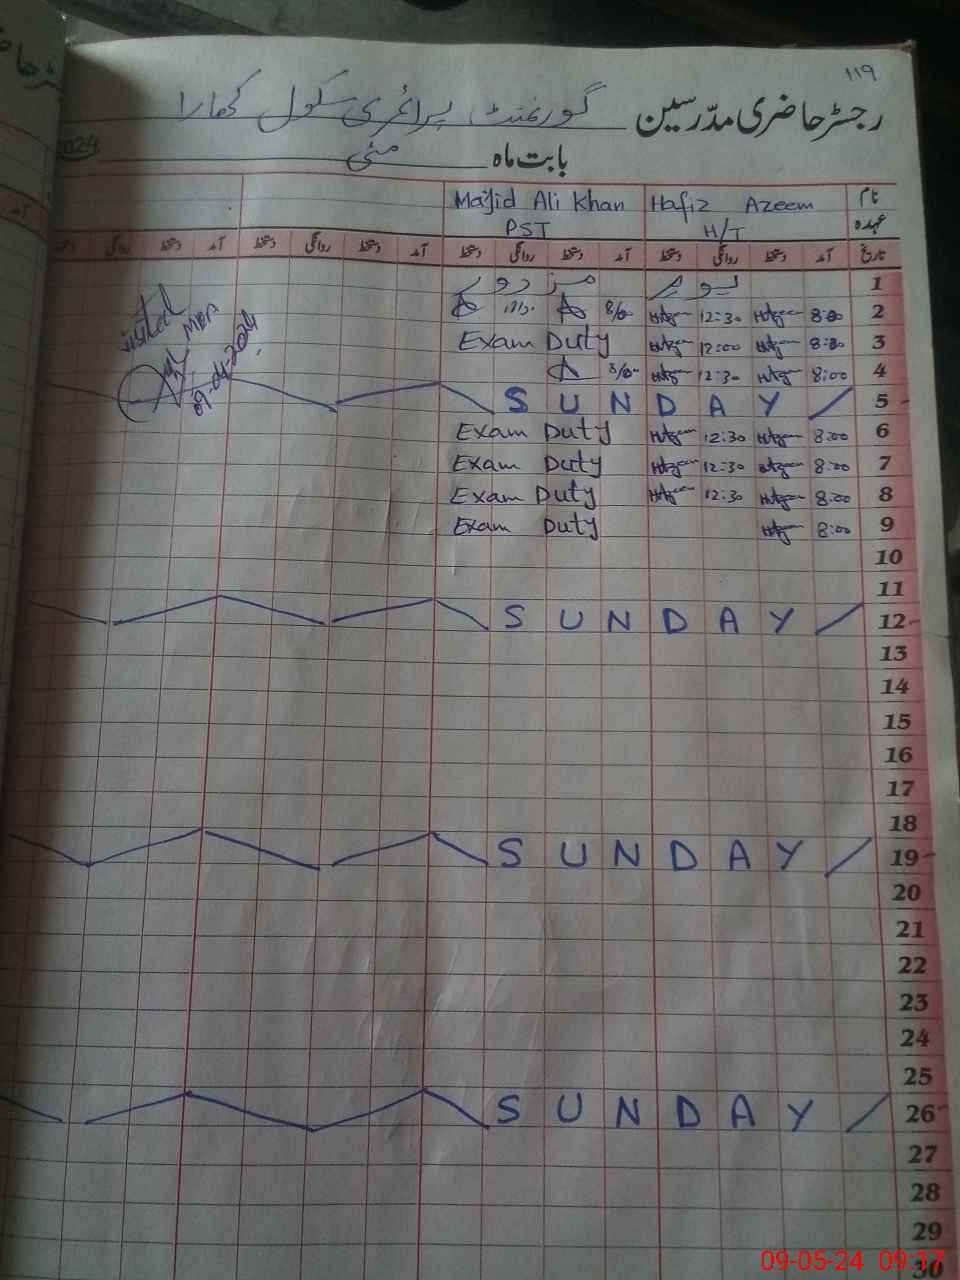 ۱۱۹
رجسٹر حاضری مدرسین گورنمنٹ پرائمری سکول کھارا
بابت ماہ مئی 2024
نام Hafiz Azeem Majid Ali Khan
عہدہ H/T PST
تاریخ آمد دستخط روانگی دستخط آمد دستخط روانگی دستخط آمد دستخط روانگی دستخط آمد دستخط روانگی دستخط
1 یوم مزدور
2 8:00 12:30 8/00
3 8:00 12:00 Exam Duty
4 8:00 12:30 8/00
5 SUNDAY
6 8:00 12:30 Exam Duty
7 8:00 12:30 Exam Duty
8 8:00 12:30 Exam Duty
9 8:00 Exam Duty
10
11
12 SUNDAY
13
14
15
16
17
18
19 SUNDAY
20
21
22
23
24
25
26 SUNDAY
27
28
29
30
visited
MEA
09-04-2024
09-05-24 09:17